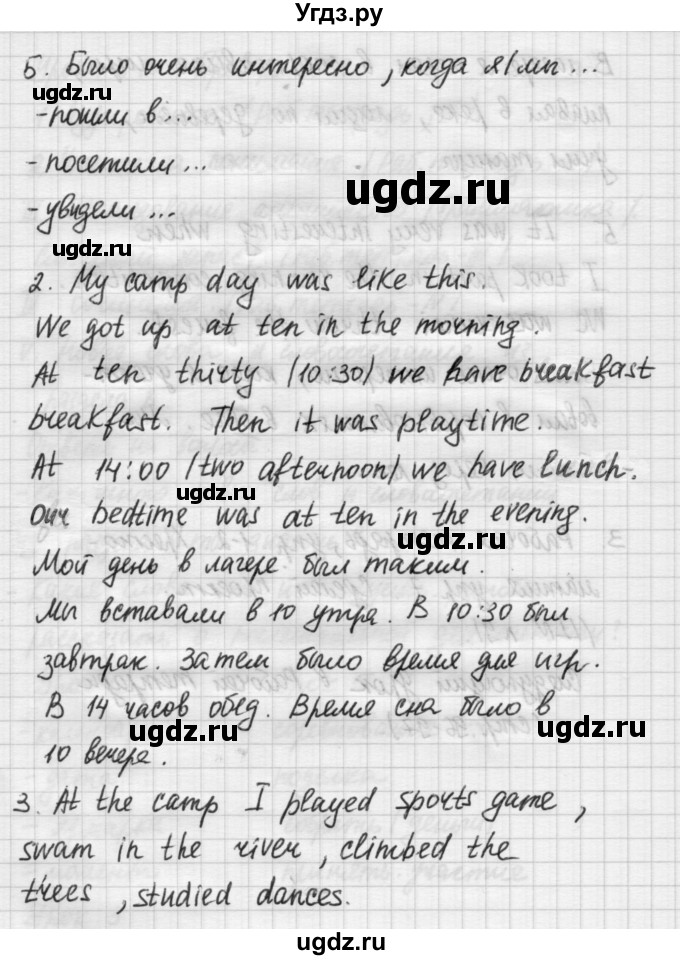 Угдз.ру
5. Было очень интересно, когда я/мы...
ugdz.ru
-пошли в...
-посетили...
ugdz.ru
-увидели...
ugdz.ru
2. My camp day was like this.
We got up at ten in the morning.
At ten thirty (10:30) we have breakfast
breakfast. Then it was playtime.
At 14:00 (two afternoon) we have lunch.
ugdz.ru
Our bedtime was at ten in the evening.
ugdz.ru
Мой день в лагере был таким.
Мы вставали в 10 утра. В 10:30 был
завтрак. Затем было время для игр.
В 14 часов обед. Время сна было в
ugdz.ru
ugdz.ru
10 вечера.
3. At the camp I played sports game,
swam in the river, climbed the
trees, studied dances.
ugdz.ru